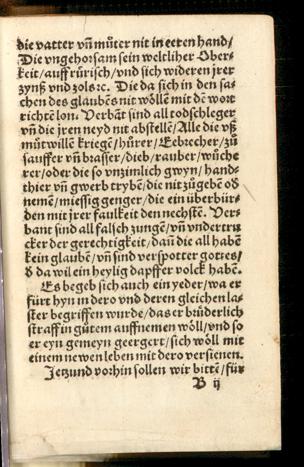 die vatter vñ můter nit in eeren hand/
Die vngehorsam sein weltliher Ober-
keit/auffrürisch/vnd sich wideren jrer
zynß vnd zolsꝛc. Die da sich in den sa-
chen des glaubẽs nit wöllẽ mit dẽ wort
richtẽ lon. Verbãt sind all todschleger
vñ die jren neyd nit abstellẽ/Alle die vß
můtwillẽ kriegẽ/hůrer/Eebrecher/zů
sauffer vñ brasser/dieb/rauber/wůche
rer/oder die so vnzimlich gwyn/hand-
thier vñ gwerb trybẽ/die nit zůgebẽ oď
nemẽ/miessig genger/die ein überbür-
den mit jrer faulkeit den nechstẽ. Ver-
bant sind all falsch zungẽ/vñ vndertru
cker der gerechtigkeit/dañ die all habẽ
kein glaubẽ/vñ sind verspotter gottes/
ď da wil ein heylig dapffer volck habẽ.
Es begeb sich auch ein yeder/wa er
fürt hyn in dero vnd deren gleichen la-
ster begriffen wurde/das er brüderlich
straff in gůtem auffnemen wöll/vnd so
er eyn gemeyn geergert/sich wöll mit
einem newen leben mit dero versienen.
Jetzund vorhin sollen wir bittẽ/für
B ij